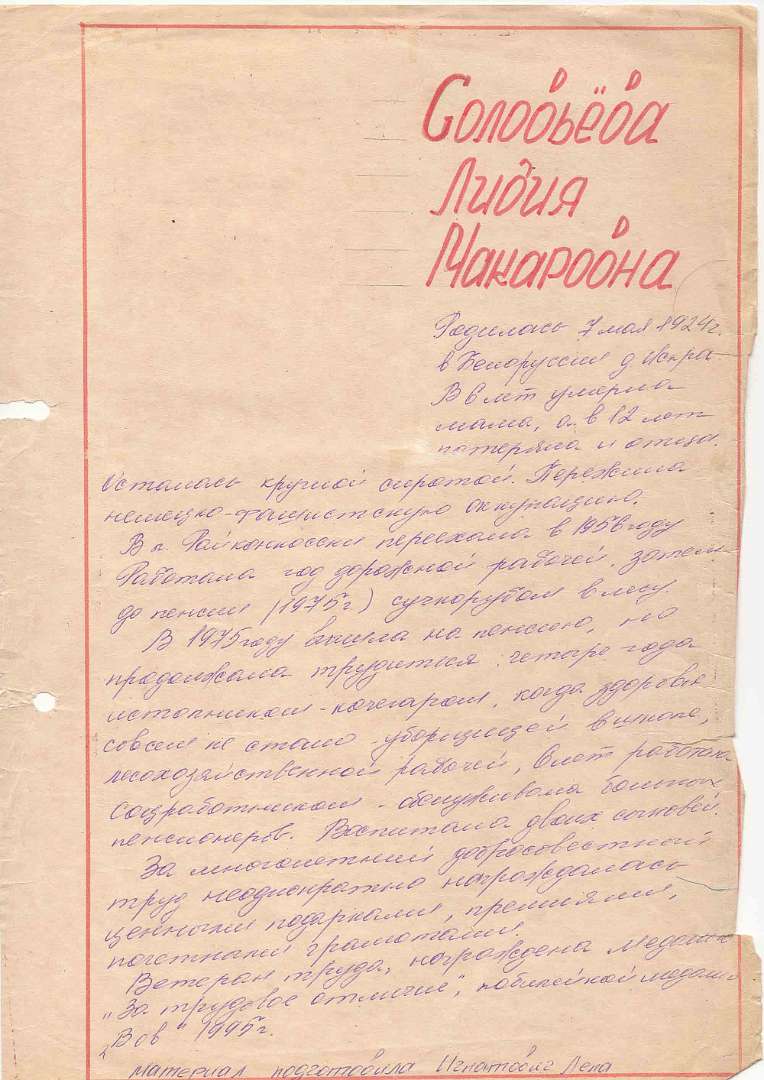 Соловьёва
Лидия
Макаровна
Родилась 7 мая 1924г.
в Белоруссии д Искра
В 6 лет умерла
мама, а в 12 лет
потеряла и отца.
Осталась круглой сиротой. Пережила
немецко-фашистскую оккупацию.
В п. Райконкоски переехала в 1956 году
Работала год дорожной рабочей, затем
до пенсии (1975г) сучкорубом в лесу.
В 1975 году вышла на пенсию, но
продолжала трудиться: четыре года
истопником-кочегаром, когда здоровье
совсем не стало - уборщицей в школе,
лесохозяйственной рабочей, 6 лет работала
соцработником - обслуживала больных
пенсионеров. Воспитала двоих сыновей.
За многолетний добросовестный
труд неоднократно награждалась
ценными подарками, премиями,
почетными грамотами.
Ветеран труда, награждена медалью
"За трудовое отличие", юбилейной медалью
"Вов" 1995г.
Материал подготовила Игнатович Лена